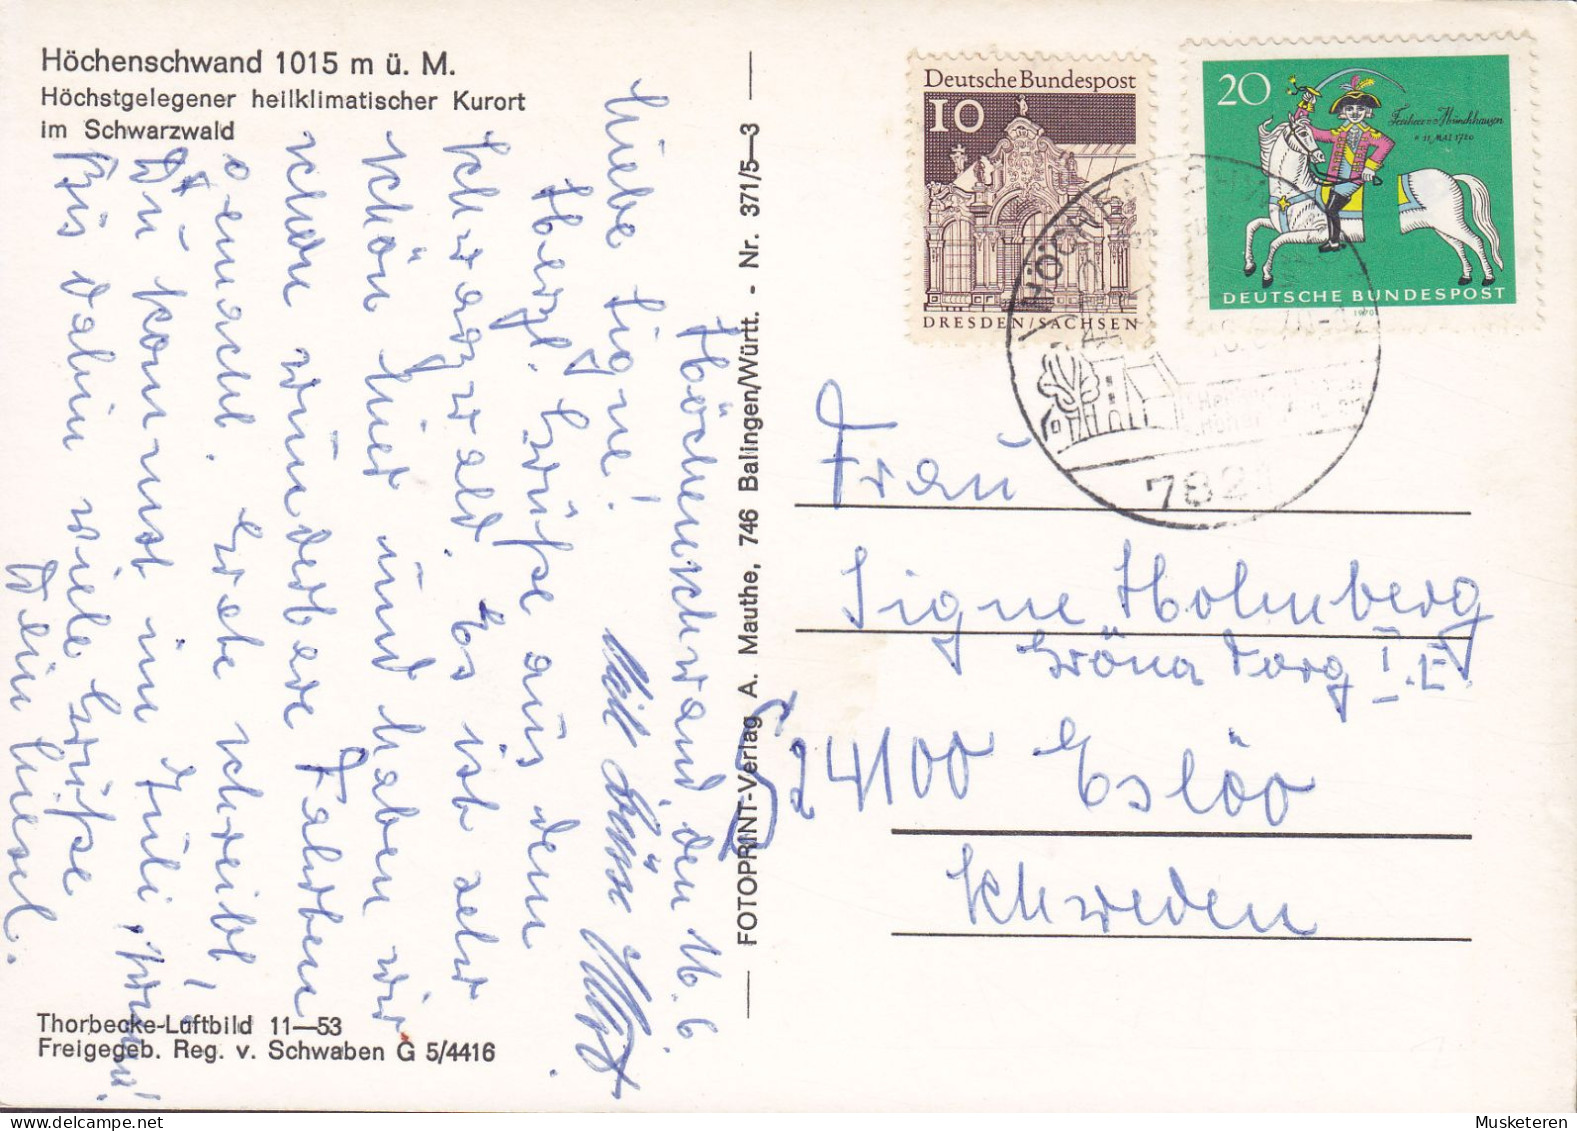 Höchenschwand 1015 m ü. M.
Höchstgelegener heilklimatischer Kurort
im Schwarzwald
Höchenschwand den 16.6.
Liebe Signe!
Herzl. Grüße aus dem
Schwarzwald. Es ist sehr
schön hier und haben wir
schon wunderbare Fahrten
gemacht. Grete schreibt,
Du kommst im Juli, prima!
Bis dahin viele Grüße
Dein Liesel.
Viel Grüße
Thorbecke-Luftbild 11—53
Freigegeb. Reg. v. Schwaben G 5/4416
FOTOPRINT-Verlag A. Mauthe, 746 Balingen/Württ. - Nr. 371/5—3
Deutsche Bundespost
10
DRESDEN/SACHSEN
20
Freiherr v. Münchhausen
* 11. MAI 1720
DEUTSCHE BUNDESPOST
1970
HÖCHENSCHW
7821
Frau
Signe Holmberg
Gröna Torg 1.E.
S 24100 Eslöv
Schweden
Musketeren